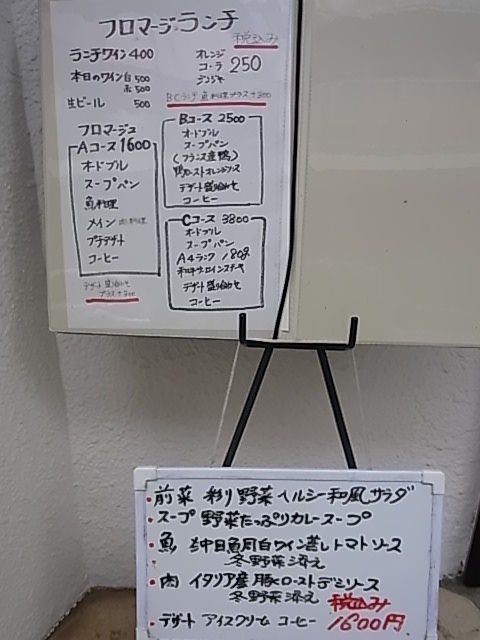 フロマージュランチ
税込み
ランチワイン 400
本日のワイン 白 500
赤 500
生ビール 500
オレンジ
コーラ 250
ジンジャ
BCランチ 魚料理プラス+300
フロマージュ
Aコース 1600
オードブル
スープパン
魚料理
メイン 肉料理
プチデザート
コーヒー
デザート盛り合わせ
プラス+300
Bコース 2500
オードブル
スープパン
(フランス産鴨)
鴨ローストオレンジソース
デザート盛り合わせ
コーヒー
Cコース 3800
オードブル
スープパン
A4ランク 180g
和牛サーロインステーキ
デザート盛り合わせ
コーヒー
・前菜 彩り野菜ヘルシー和風サラダ
・スープ 野菜たっぷりカレースープ
・魚 白ワイン蒸しトマトソース
冬野菜添え
・肉 イタリア産 豚ロースト デミソース
冬野菜添え
税込み
・デザート アイスクリーム コーヒー 1600円